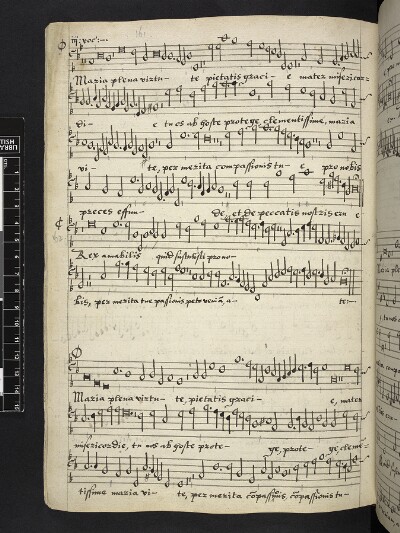 iij. voc:
Maria plena virtu- te pietatis graci- e mater misericor-
di- e tu es ab hoste protege, clementissime, maria
vi- te, per merita compassionis tu- e pro nobis
preces effun- de, et de peccatis nostris
Rex amabilis quid sustulisti pro no-
bis, per merita tue passionis peto a- ter-
Maria plena virtu- te, pietatis graci- e, mater
misericordie, tu nos ab hoste prote- ge, prote- ge, cleme-
tissime maria vi- te, per merita cõpassiõis, cõpassionis tu-